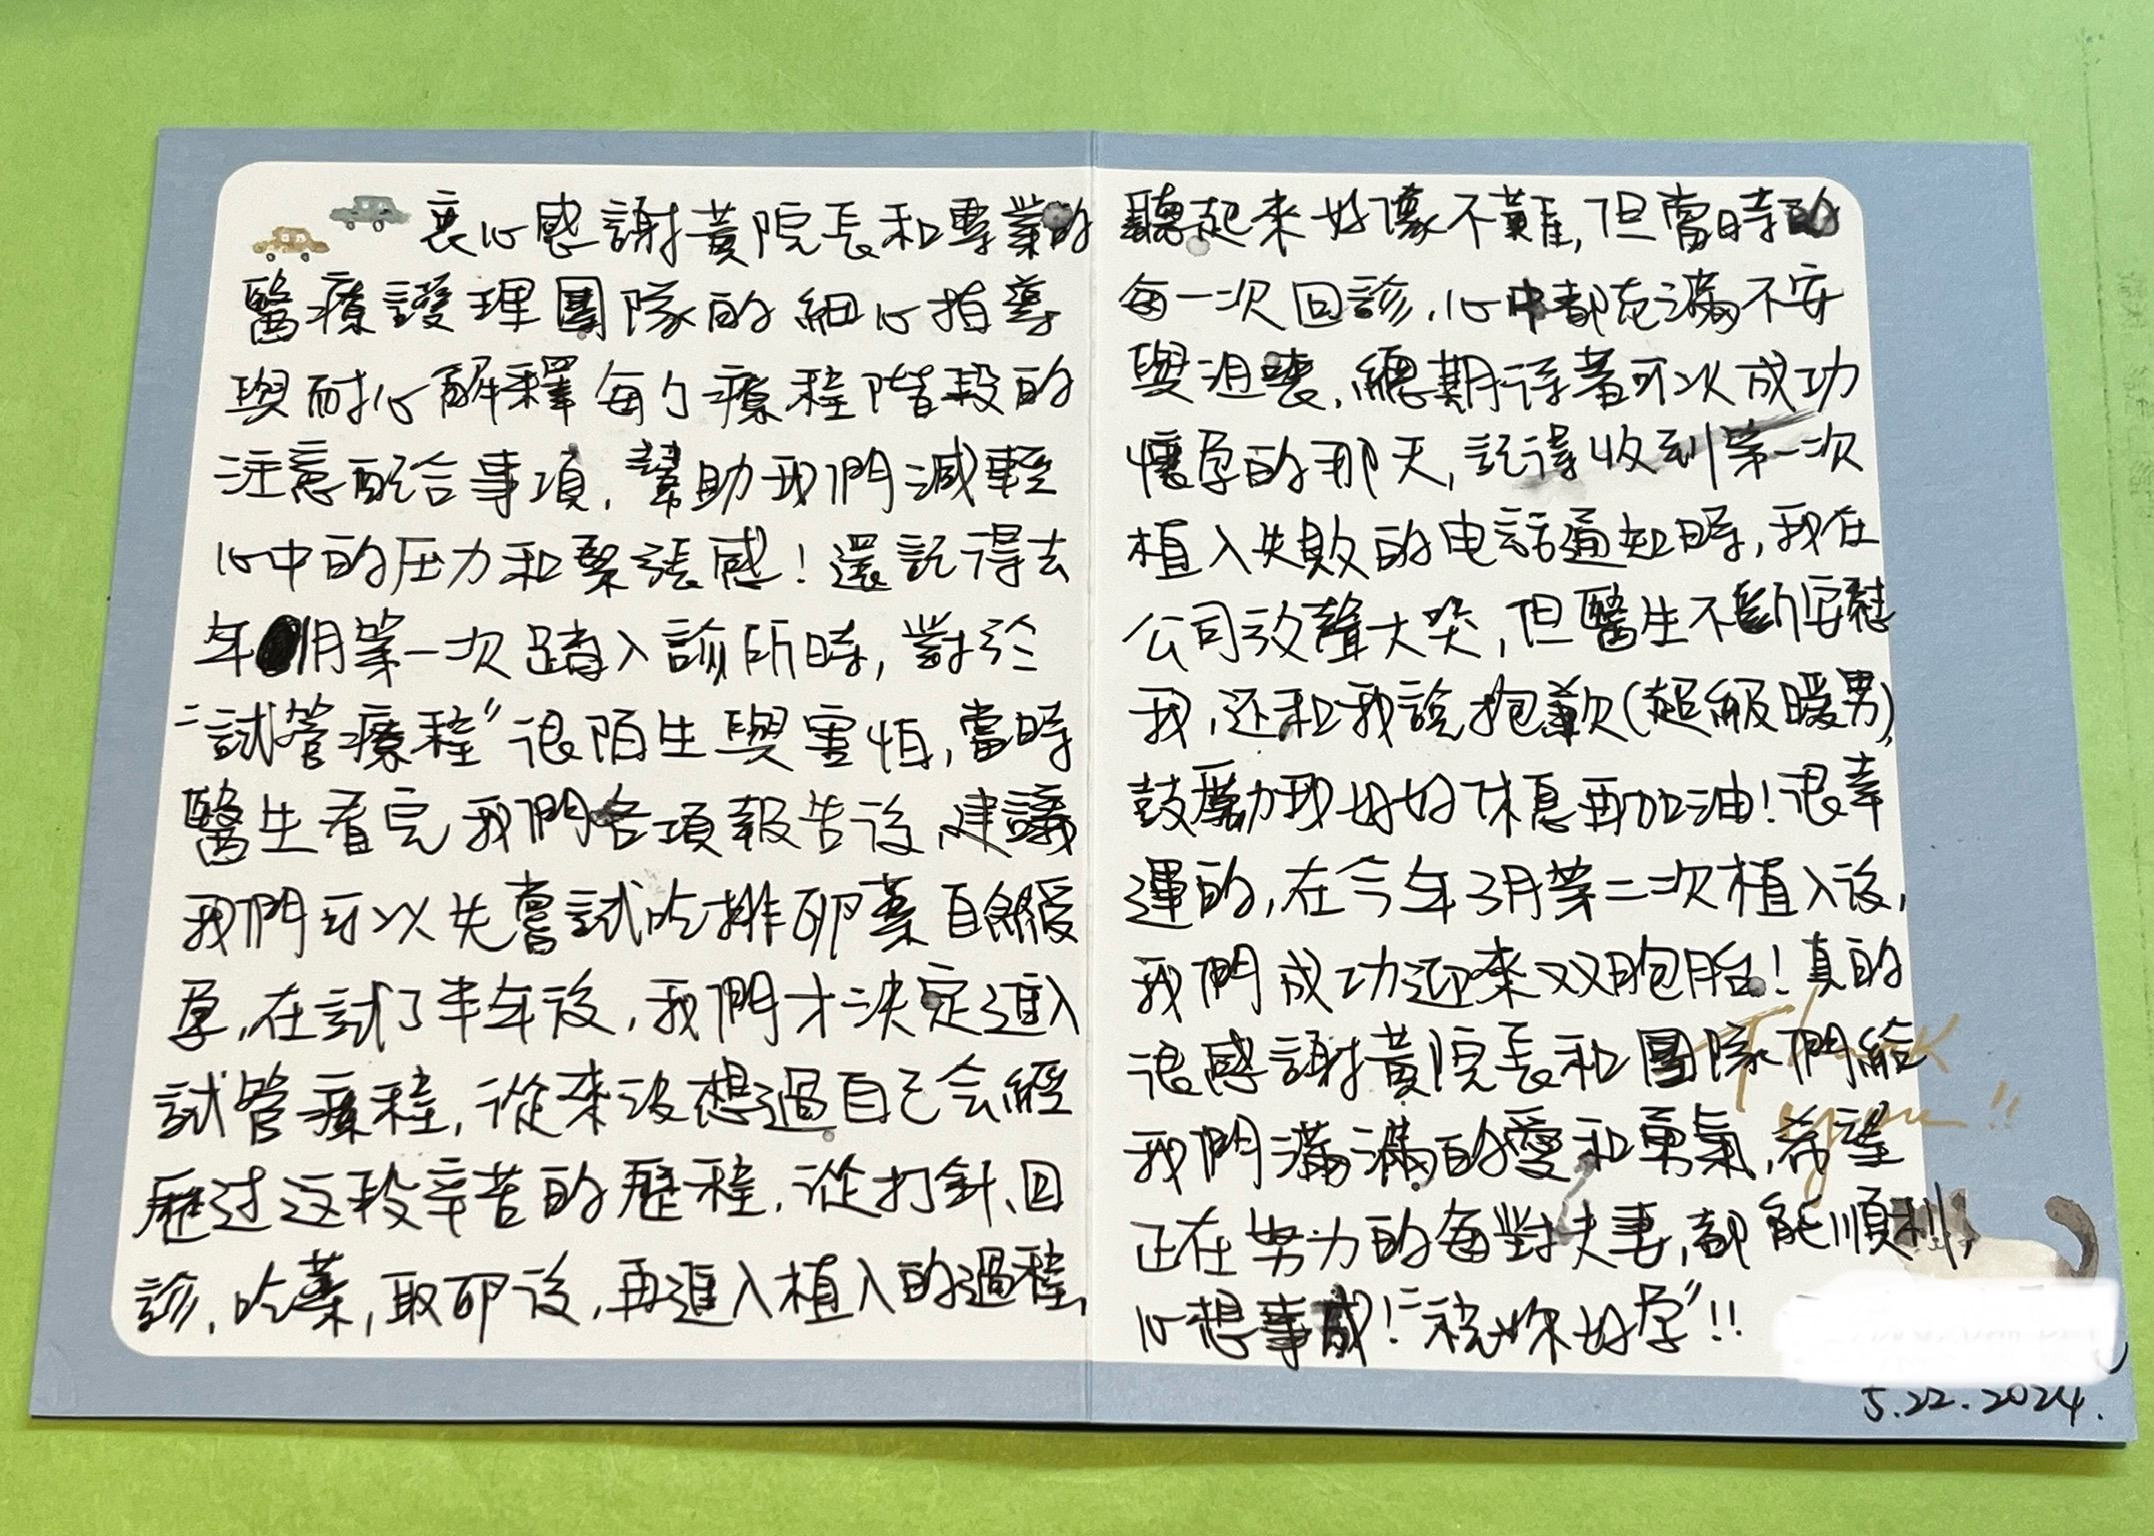 衷心感謝黃院長和專業的
醫療護理團隊的細心指導
與耐心解釋每个療程階段的
注意配合事項,幫助我們減輕
心中的压力和緊張感!還記得去
年1月第一次踏入診所時,對於
“試管療程”很陌生與害怕,當時
醫生看完我們各項報告後,建議
我們可以先嘗試吃排卵藥自然受
孕,在試了半年後,我們才決定進入
試管療程,從來沒想過自己会經
歷过这段辛苦的歷程,從打針、回
診、吃藥,取卵後,再進入植入的過程,
聽起來好像不難,但當時的
每一次回診,心中都充滿不安
與沮喪,總期待著可以成功
懷孕的那天,記得收到第一次
植入失敗的电話通知時,我在
公司放聲大哭,但醫生不斷安慰
我,还和我說抱歉(超級暖男),
鼓勵我好好休息再加油!很幸
運的,在今年3月第二次植入後,
我們成功迎來双胞胎!真的
很感謝黃院長和團隊們給
我們滿滿的愛和勇氣,希望
正在努力的每對夫妻,都能順利,
心想事成!“祝妳好孕”!!
Thank
you!!
5.22.2024.